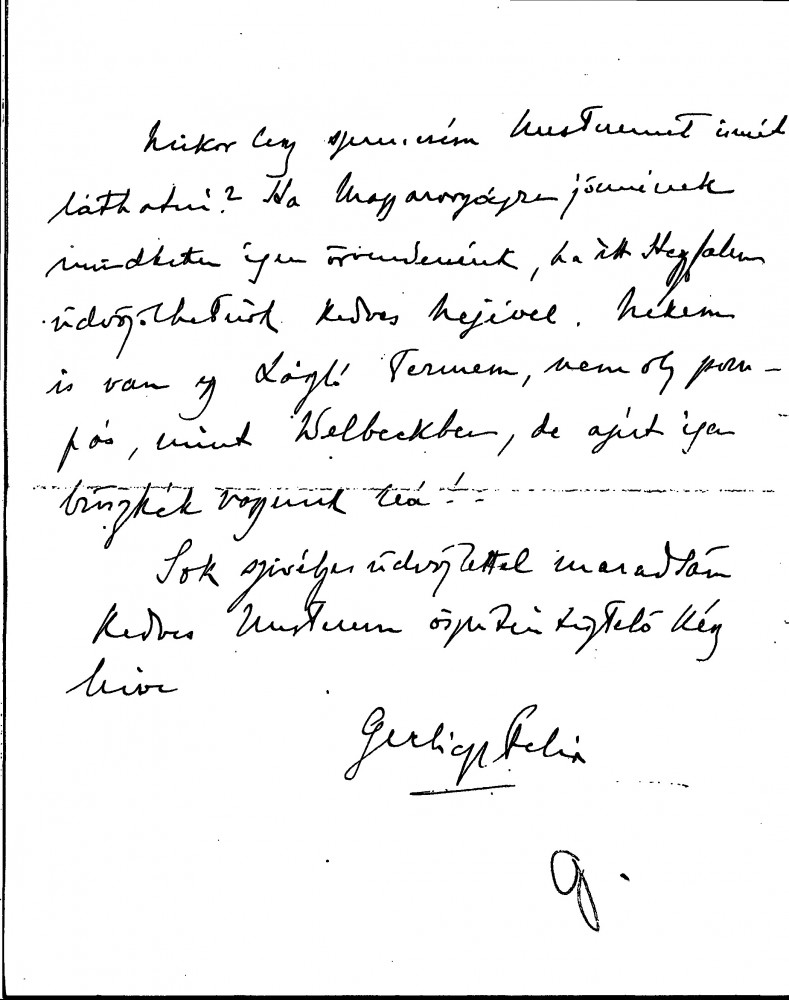 Mikor lesz szerencsém Mesteremet ismét
láthatni? Ha Magyarországra jönnének
mindketten igen örvendenénk, ha itt Hegyfalun
üdvözölhetnők kedves nejével. Nékem
is van egy László Termem, nem oly pom-
pás, mint Welbeckben, de azért igen
büszkék vagyunk reá!
Sok szivélyes üdvözlettel maradtam
kedves Mesterem őszintén tisztelő kész
hive
Gerliczy Felix
G.